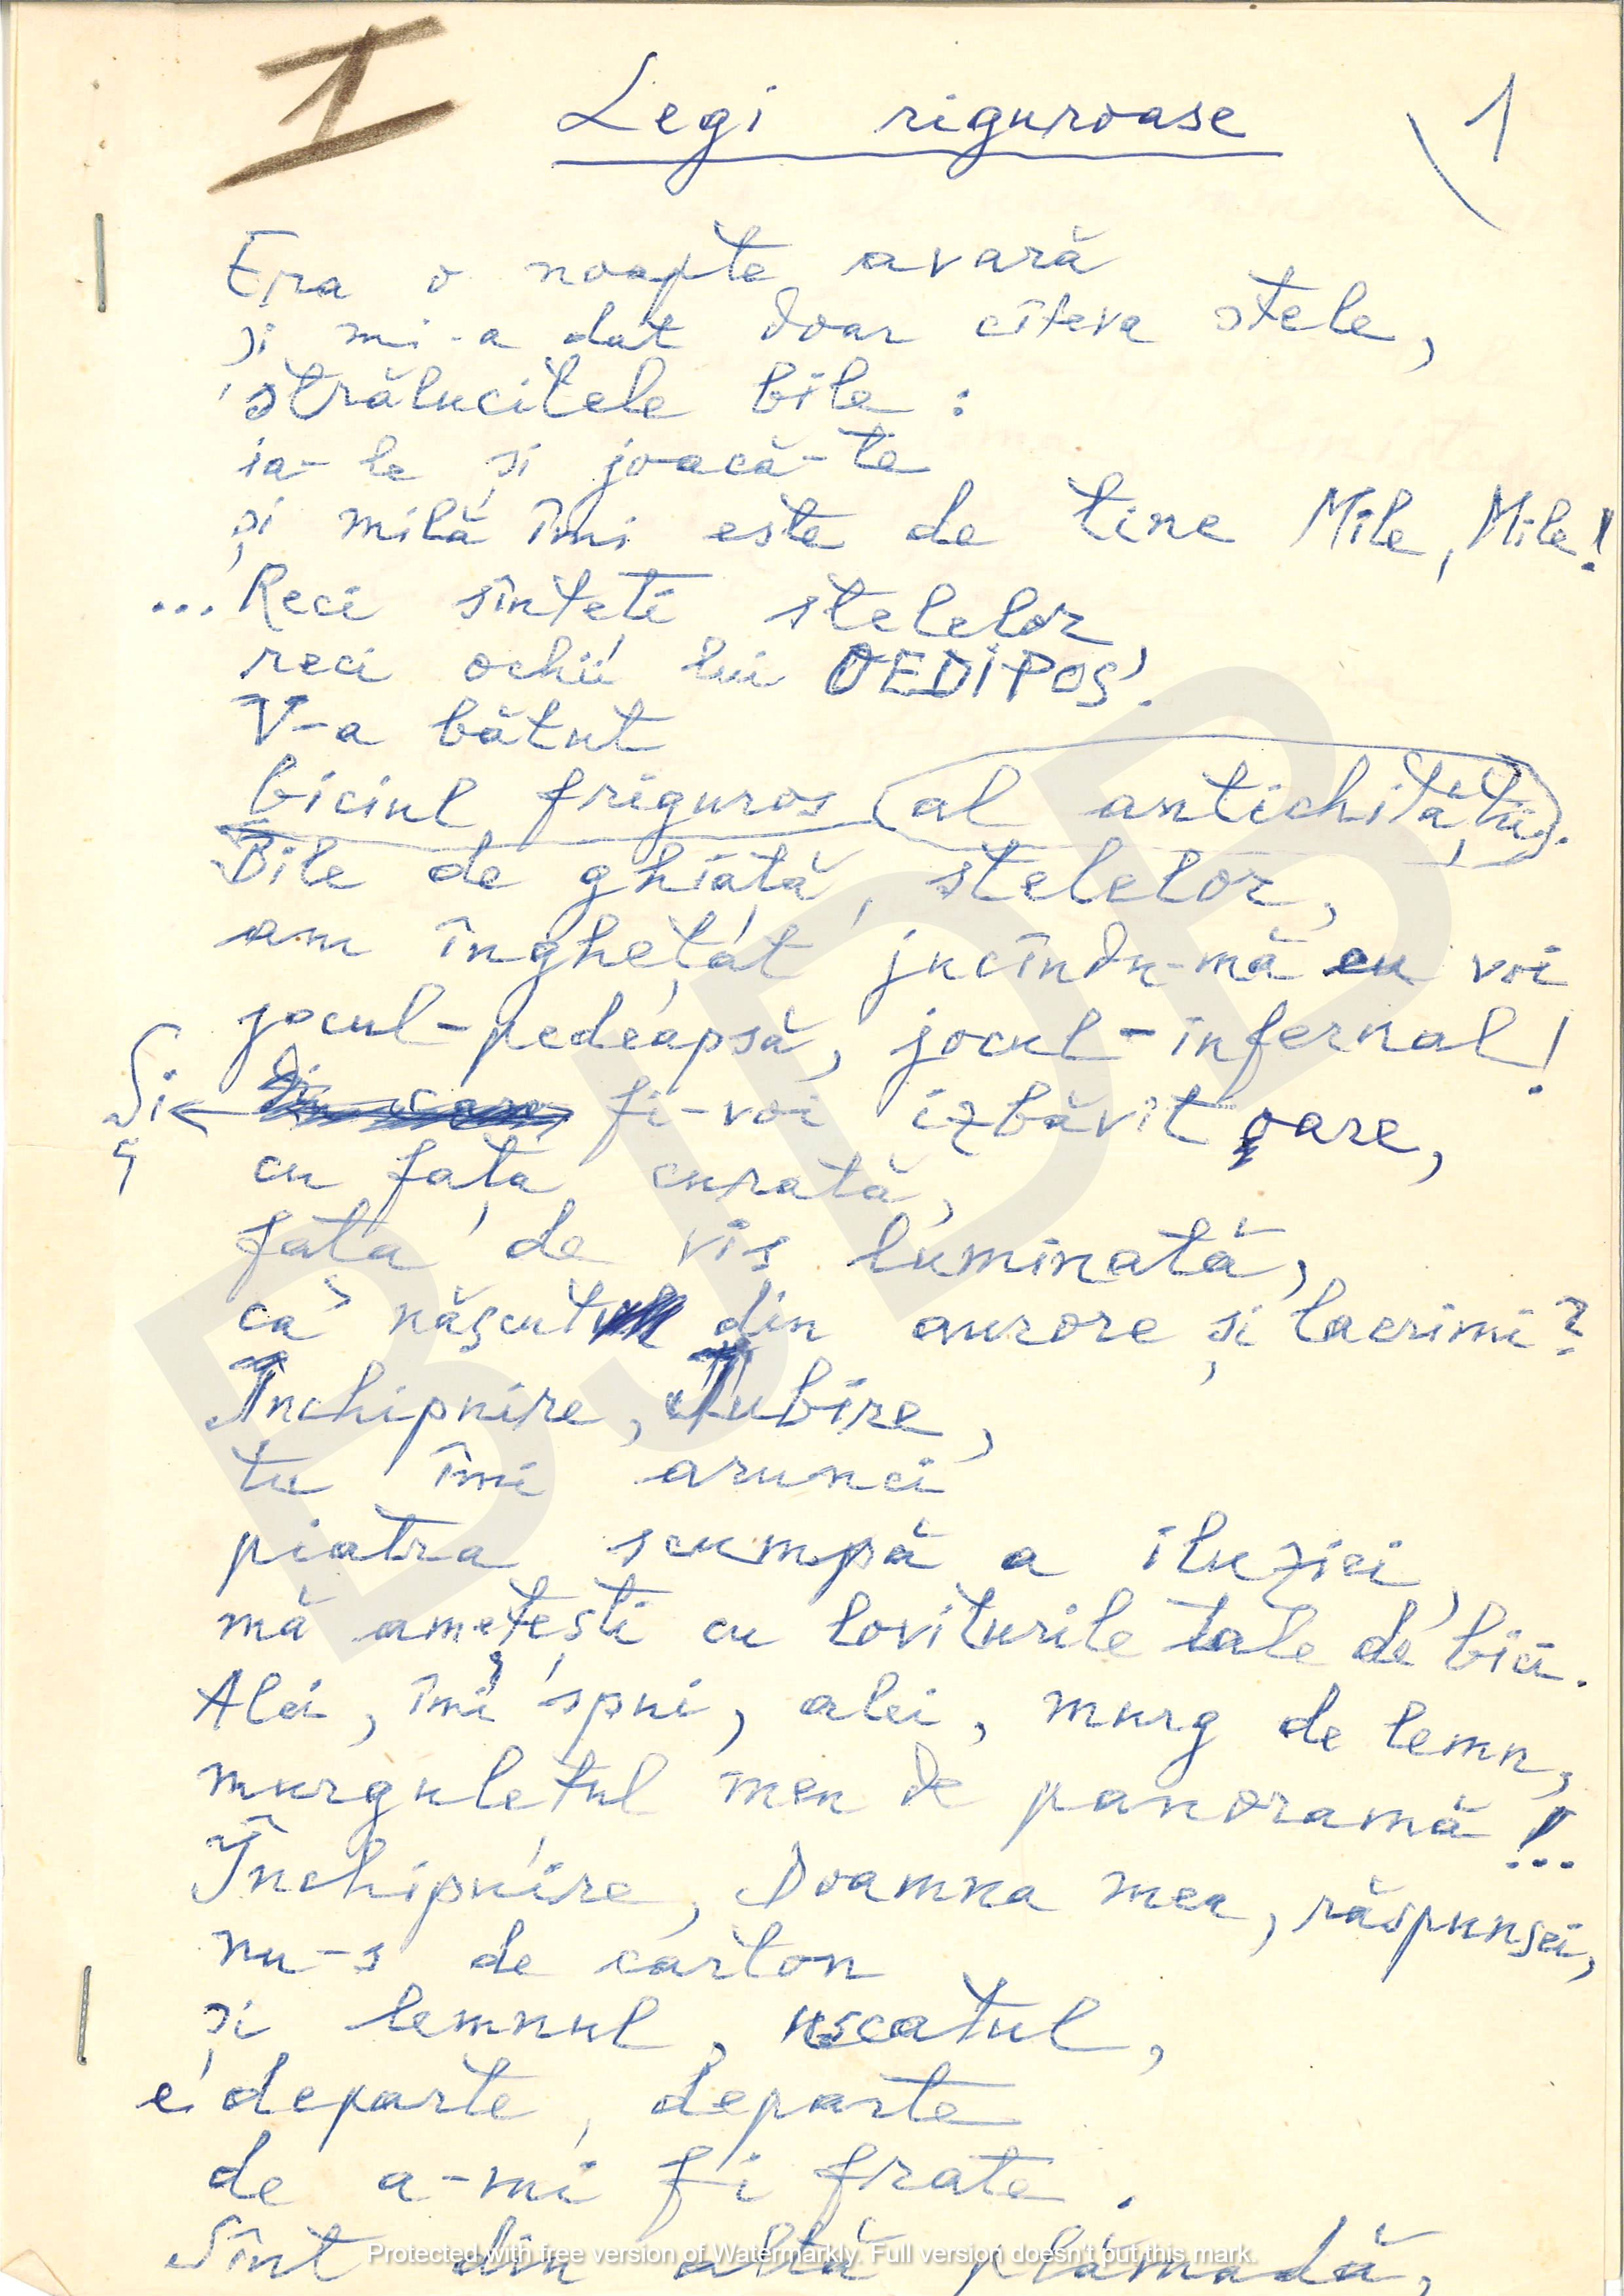 I
Legi riguroase
1
Era o noapte avară
și mi-a dat doar cîteva stele,
strălucitele bile:
ia-le și joacă-te
și milă îmi este de tine Mile, Mile!
... Reci sînteți stelelor
reci ochii lui OEDIPOS!
V-a bătut
biciul friguros (al antichității).
Bile de ghiață, stelelor,
am înghețat jucîndu-mă cu voi
jocul-pedeapsă, jocul-infernal!
Și ← Din care fi-voi izbăvit oare,
cu fața curată,
fața de vis luminată,
ca născut din aurore și lacrimi?
Închipuire, Iubire,
tu îmi arunci
piatra scumpă a iluziei,
mă amețești cu loviturile tale de bici.
Alei, îmi spui, alei, murg de lemn,
murgulețul meu de panoramă!...
Închipuire, Doamna mea, răspunsei,
nu-s de carton
și lemnul, uscatul,
e departe, departe
de a-mi fi frate.
Sînt din altă plămadă,
Protected with free version of Watermarkly. Full version doesn't put this mark.
BJDB